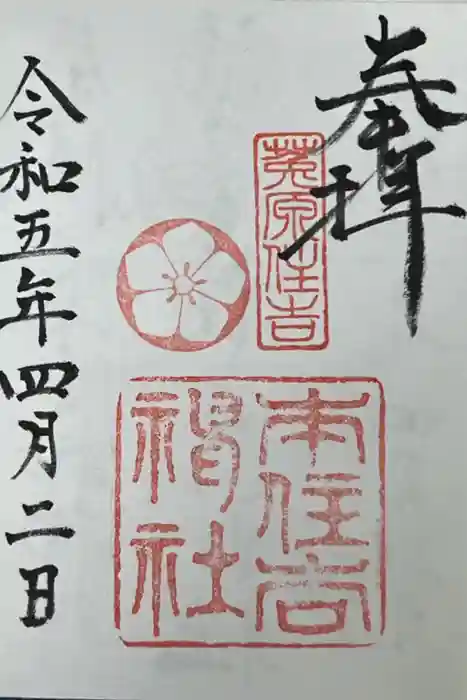 奉拝
莵原住吉
本住吉
神社
令和五年四月二日